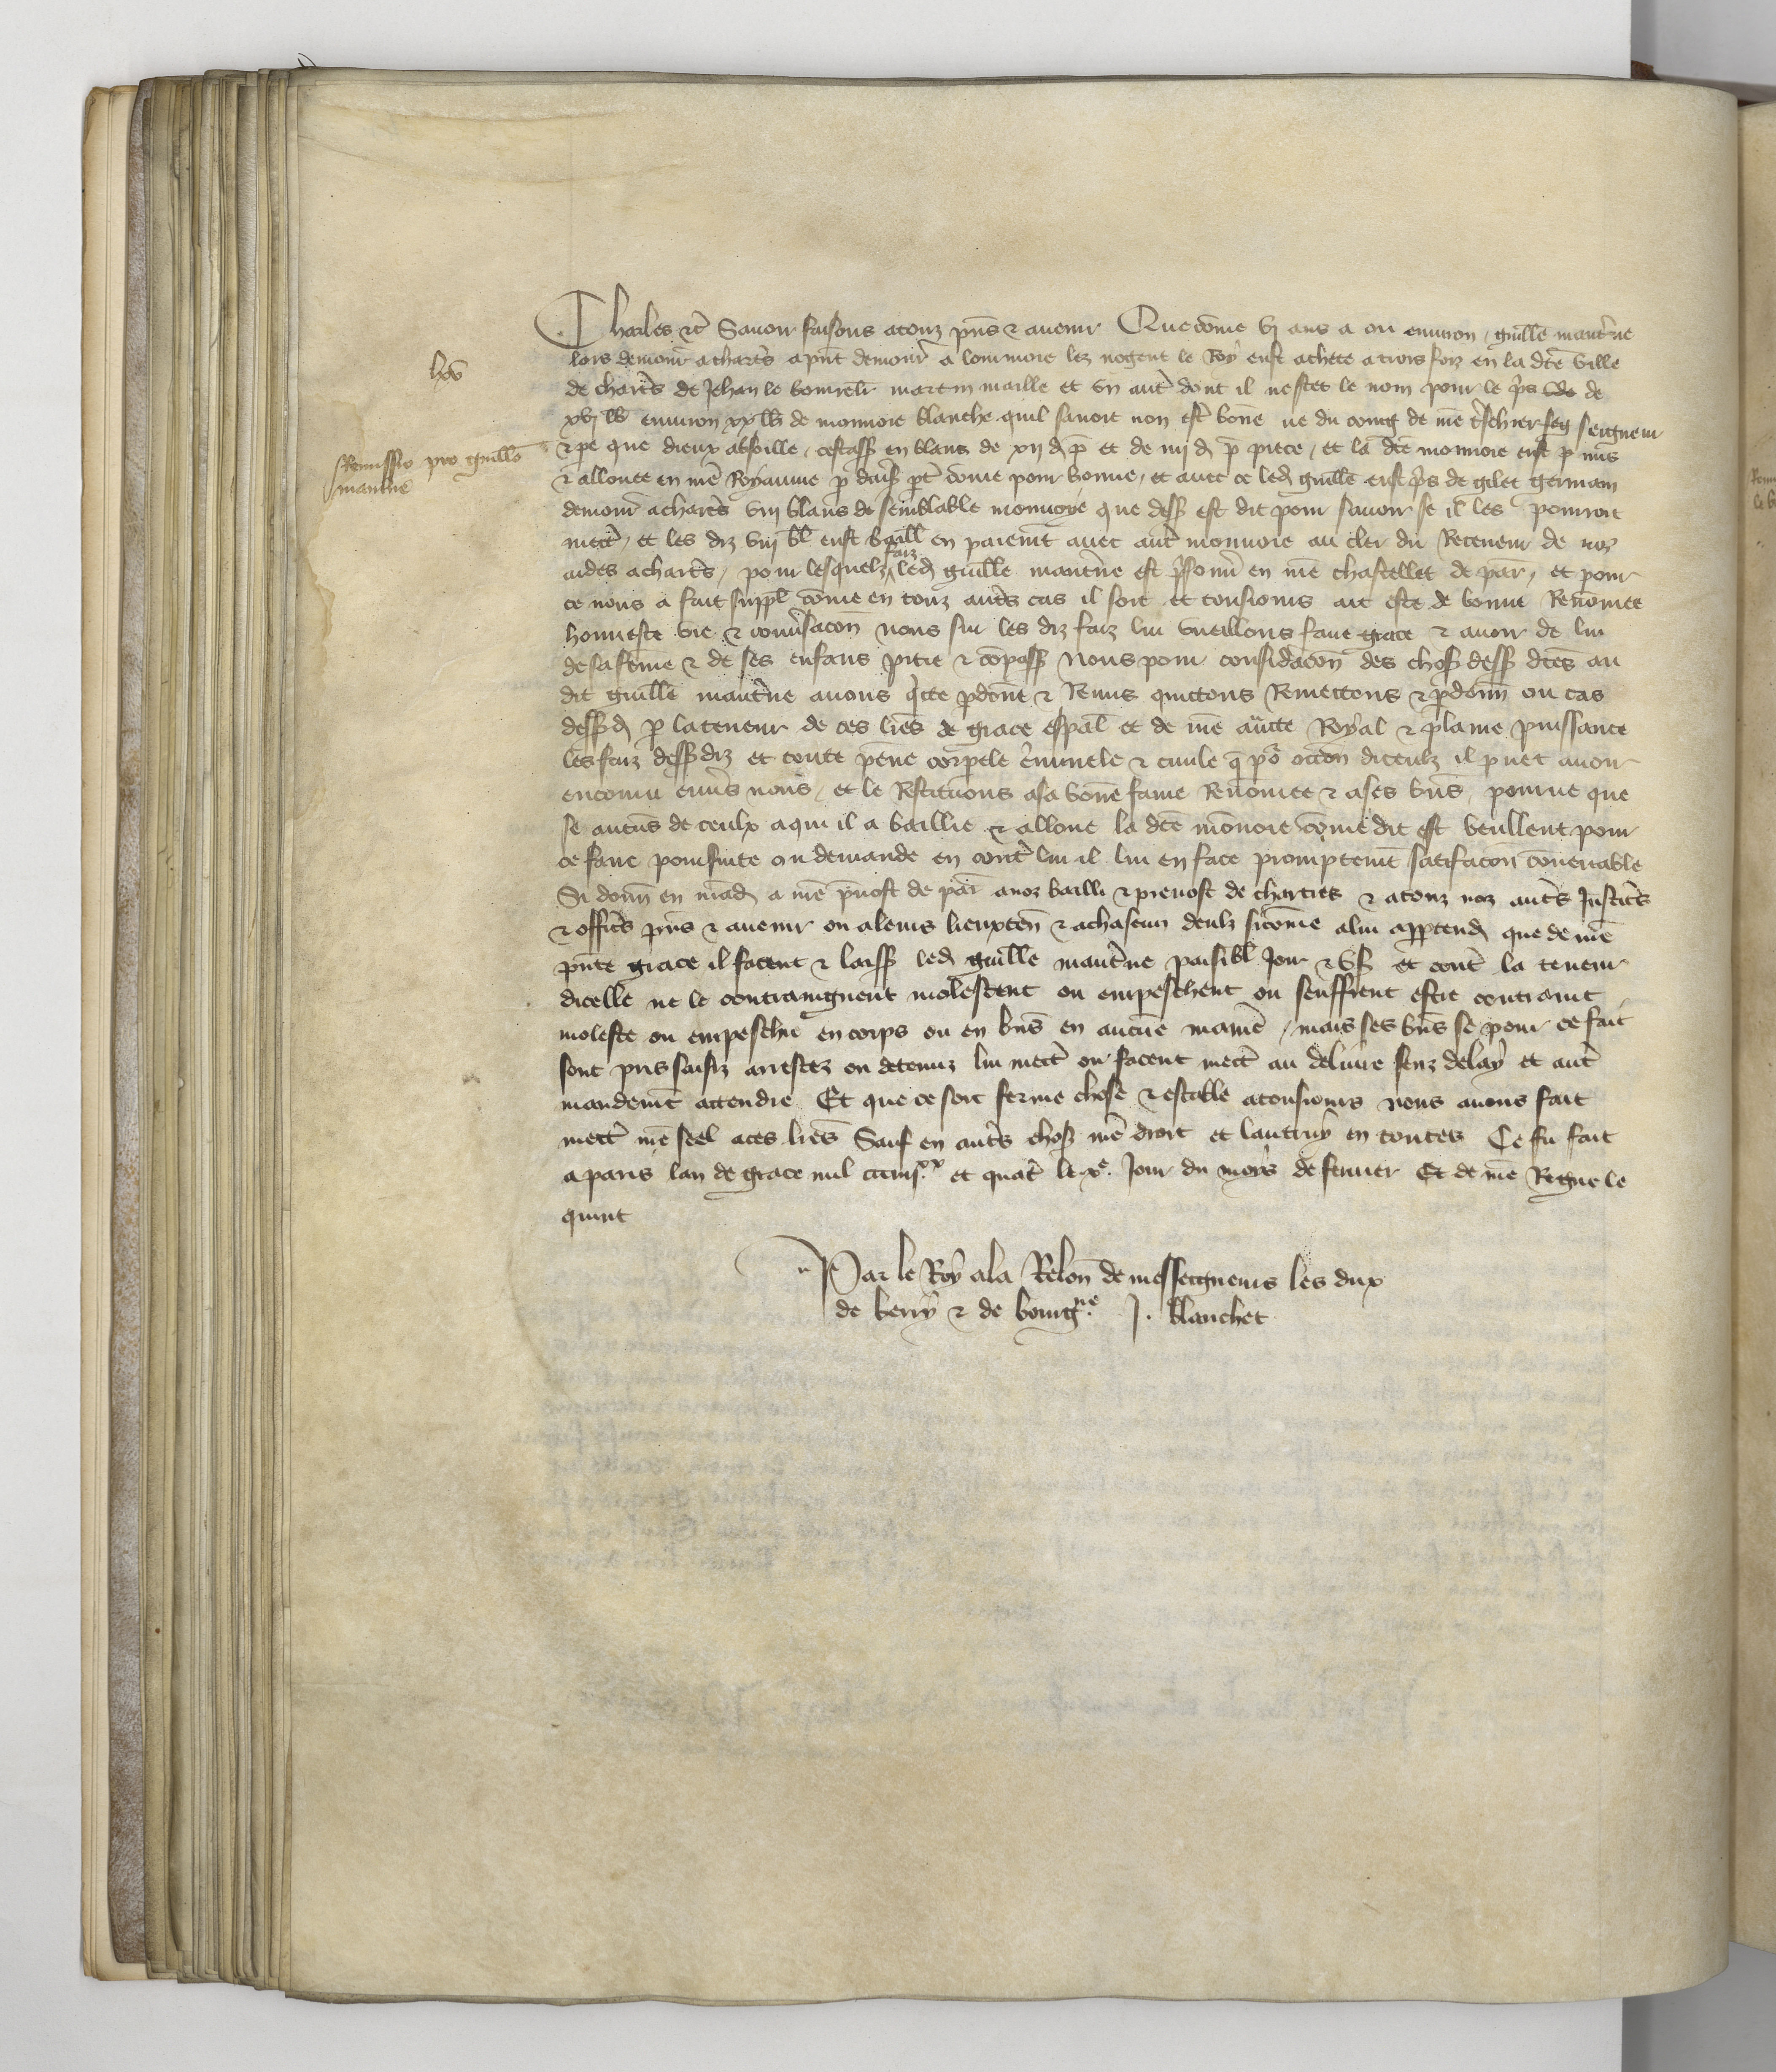 Charles etc Savoir faisons a touz pñs & avenir Que cõme vj ans a ou environ / guille mautine
lors demour a chartes a pñt demour a lommoie lez nogent le Roy eust achete a trois foiz en la dce ville
de chartes de Jehan le martin maille et un aut dont il nescet le nom pour le pris de
xvj lb environ xx lb de monnoie blanche quil savoit non est bõne ne du coing de nre tschier seigneur
& pe que dieux absoille / cestass en blans de xij d p et de iiij d p piece / et la dce monnoie eust p
& allouee en nre Royaume p cõme pour bonne / et avec ce led guille eust pris de gilet germain
demour a chartes viij blans de semblable monnoye que dess est dit pour savoir se il les pourroit
mectre / et les diz viij bl eust baill en paiemt avec aut monnoie au clerc du Receveur de noz
aides a chartes / pour lesquelz faiz led guille mautine est prisonn en nre chastellet de par / et pour
ce nous a fait suppl cõme en touz autes cas il soit et tousjours ait este de bonne Renõmee
honneste vie & convsacon nous sur les diz faiz lui vueillons faire grace & avoir de lui
de sa feme & de ses enfans pitie & cõpass Nous pour consideracon des chos dess dces au
dit guille mautine avons qicte pdonne & Remis quictons Remettons & pdonn ou cas
dessd p la teneur de ces lres de grace espal et de nre aucte Royal & plaine puissance
les faiz dess diz et toute peine corpele criminele & civile q por occon diceulz il puet avoir
encouru envs nous / et le Restituons a sa bonne fame Renõmee & a ses bns / pourvu que
se aucus de ceulx a qui il a baillie & alloue la dce mõnoie cõme dit est veullent pour
ce faire poursuite ou demande en cont lui il lui en face promptemt satifacon convenable
Si donn en mad a nre pvost de par a noz bailli & prevost de chartres & a touz noz autes Justices
& offices pñs & avenir ou a leurs lieuxten & a chascun deulz sicõme a lui apptend que de nre
pñte grace il facent & laiss led guille mautine paisibl Jour & us et cont la teneur
dicelle ne le contraingnent molestent ou empeschent ou seuffrent estre contraint
moleste ou empeschie en corps ou en bns en aucune manie / mais ses bns se pour ce fait
sont pris saisiz arrestez ou detenuz lui mectet ou facent mect au delivre senz delay et aut
mandemt attendre Et que ce soit ferme chose & estable a tousjours nous avons fait
mect nre seel a ces lres Sauf en autes chos nre droit et lautruy en toutes Ce fu fait
a paris lan de grace mil ccciiij.xx et quat le xe. Jour du mois de fevrier Et de nre Regne le
quint
Par le Roy a la Relon de messeigneurs les dux
de berry & de bourgne. J. blanchet
Remissio pro guillo
mautine